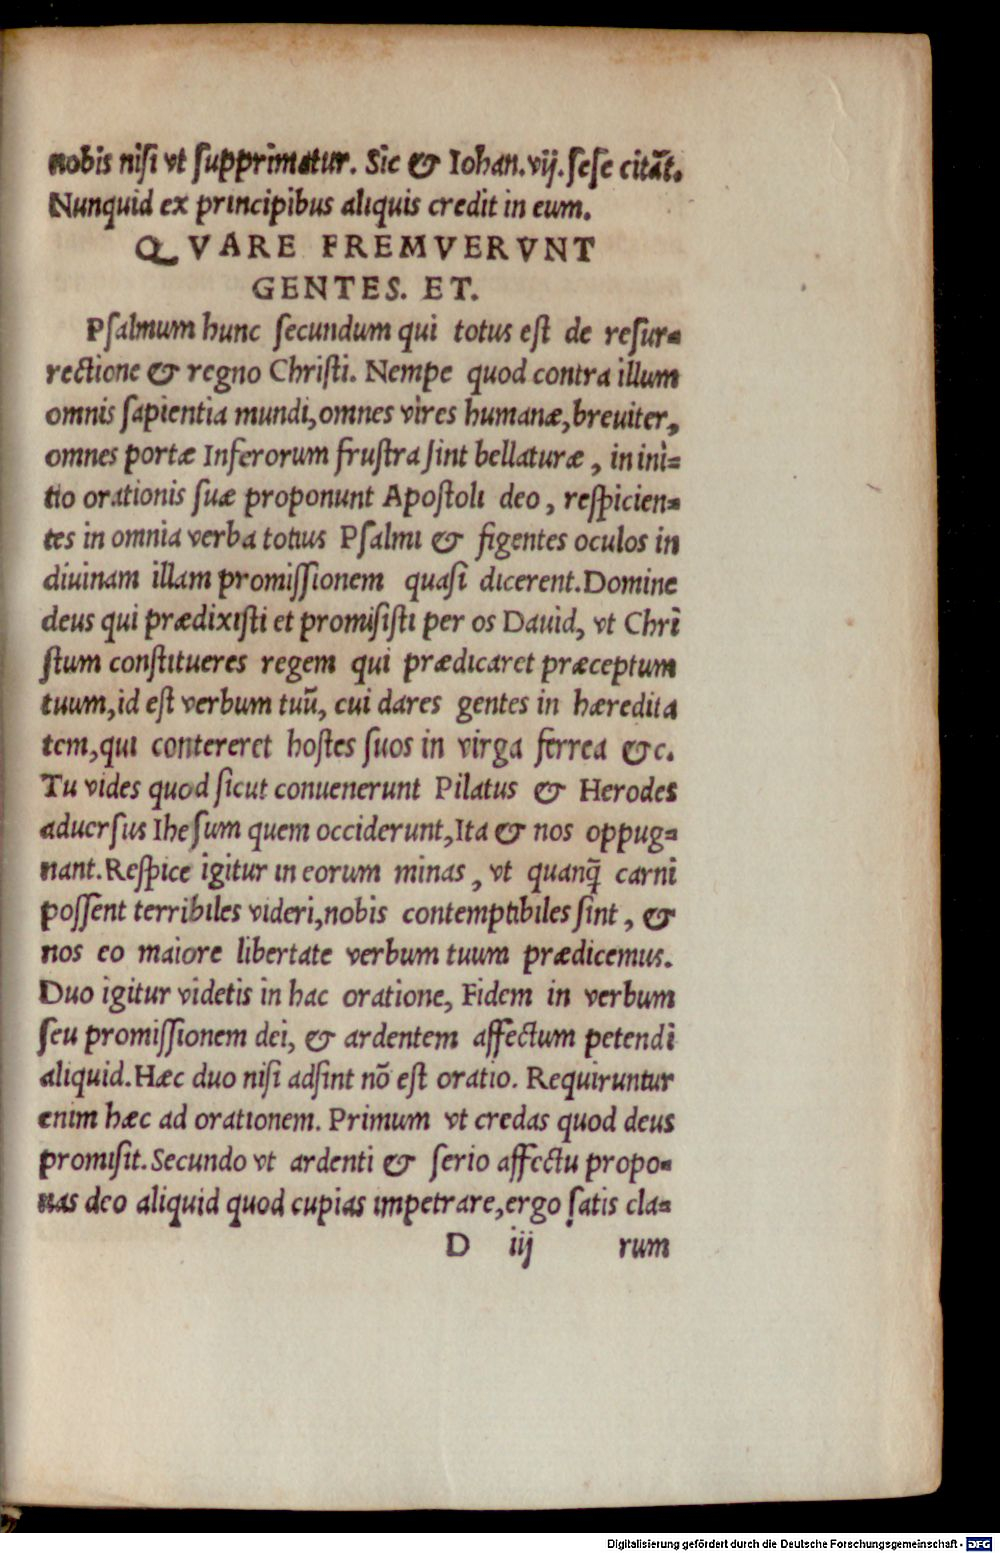 nobis niſi vt ſupprimatur. Sic & Iohan.vij.ſeſe citãt.
Nunquid ex principibus aliquis credit in eum.
QVARE FREMVERVNT
GENTES. ET.
Pſalmum hunc ſecundum qui totus eſt de reſur-
rectione & regno Chriſti. Nempe quod contra illum
omnis ſapientia mundi,omnes vires humanæ,breuiter,
omnes portæ Inferorum fruſtra ſint bellaturæ, in ini-
tio orationis ſuæ proponunt Apoſtoli deo, reſpicien-
tes in omnia verba totius Pſalmi & figentes oculos in
diuinam illam promiſſionem quaſi dicerent.Domine
deus qui prædixiſti et promiſiſti per os Dauid, vt Chri
ſtum conſtitueres regem qui prædicaret præceptum
tuum,id eſt verbum tuũ, cui dares gentes in hæredita
tem,qui contereret hoſtes ſuos in virga ferrea &c.
Tu vides quod ſicut conuenerunt Pilatus & Herodes
aduerſus Iheſum quem occiderunt,Ita & nos oppug-
nant.Reſpice igitur in eorum minas, vt quanq̃ carni
poſſent terribiles videri,nobis contemptibiles ſint, &
nos eo maiore libertate verbum tuum prædicemus.
Duo igitur videtis in hac oratione, Fidem in verbum
ſeu promiſſionem dei, & ardentem affectum petendi
aliquid.Hæc duo niſi adſint nõ eſt oratio. Requiruntur
enim hæc ad orationem. Primum vt credas quod deus
promiſit.Secundo vt ardenti & ſerio affectu propo-
nas deo aliquid quod cupias impetrare,ergo ſatis cla-
D iij rum
Digitalisierung gefördert durch die Deutsche Forschungsgemeinschaft - DFG